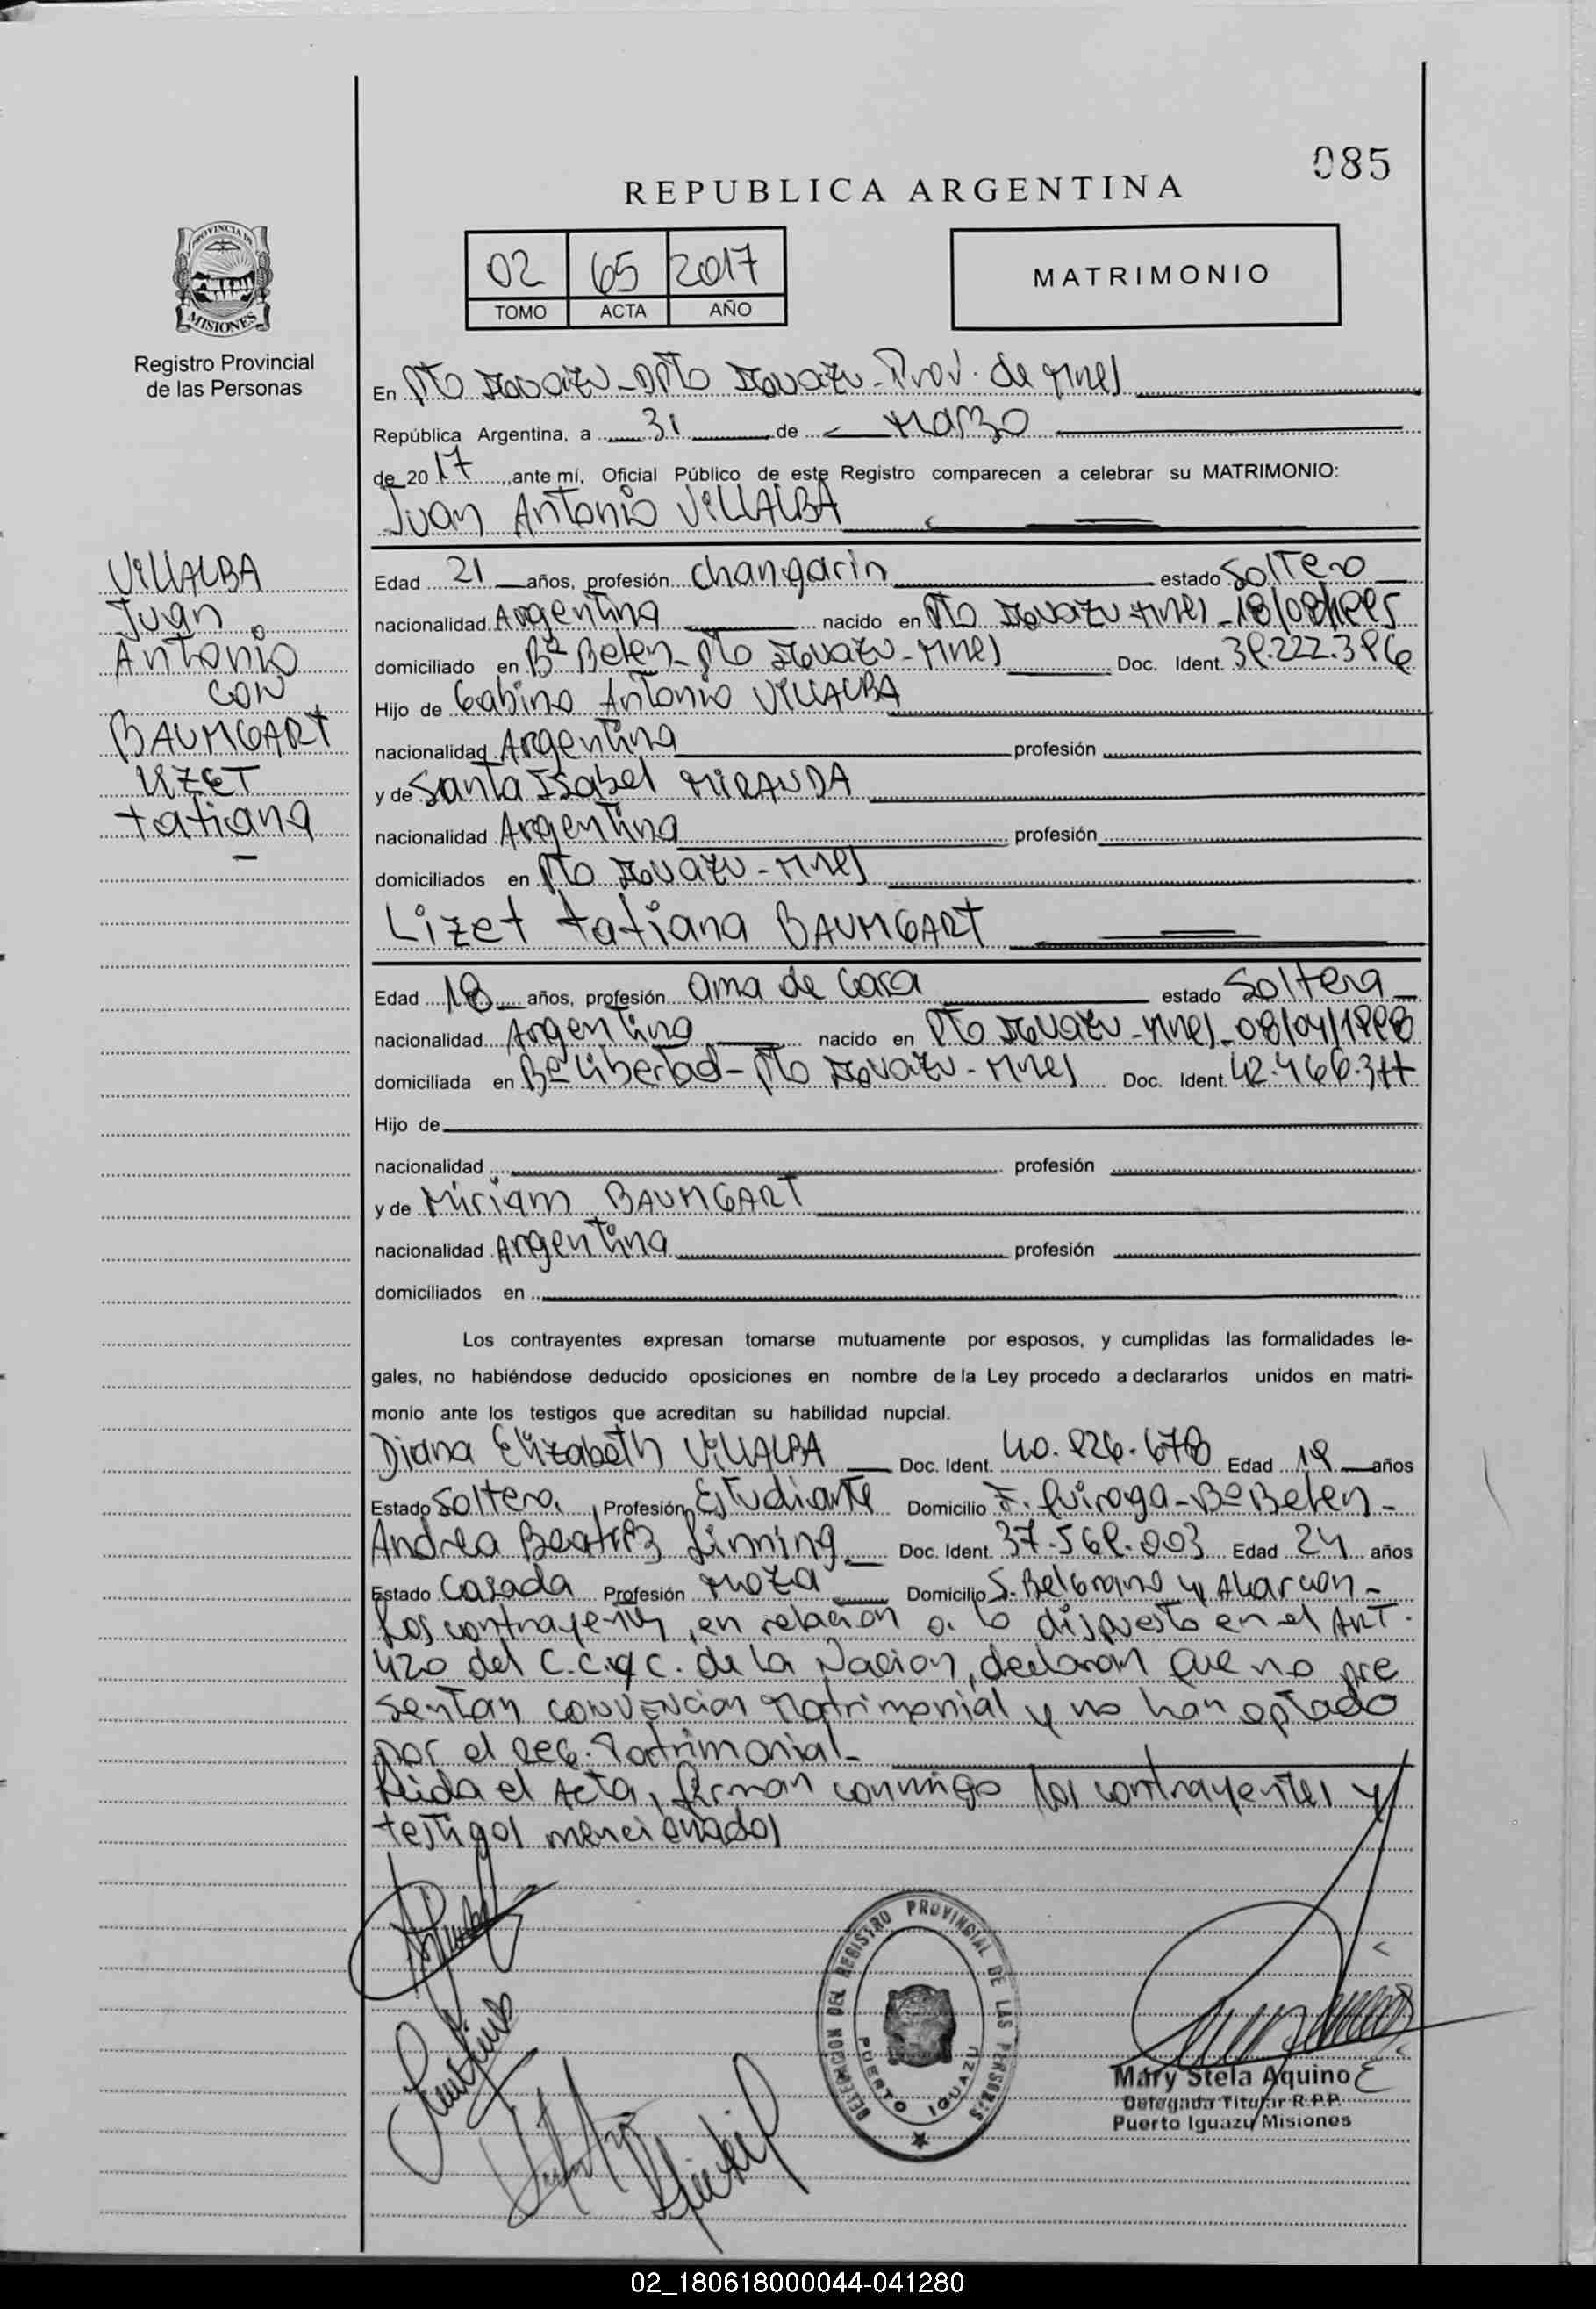 085
REPUBLICA ARGENTINA
02 65 2017
TOMO ACTA AÑO
MATRIMONIO
PROVINCIA DE
MISIONES
Registro Provincial
de las Personas
En Pto Iguazu - Dpto Iguazu - Prov. de Mnes
República Argentina, a 31 de Marzo
de 2017, ante mí, Oficial Público de este Registro comparecen a celebrar su MATRIMONIO:
Juan Antonio VILLALBA
VILLALBA
Juan
Antonio
CON
BAUMGART
LIZET
tatiana
Edad 21 años, profesión changarin estado Soltero
nacionalidad Argentina nacido en Pto Iguazu - Mnes - 18/08/1995
domiciliado en Bº Belen - Pto Iguazu - Mnes Doc. Ident. 39.222.396
Hijo de Gabino Antonio VILLALBA
nacionalidad Argentina profesión
y de Santa Isabel MIRANDA
nacionalidad Argentina profesión
domiciliados en Pto Iguazu - Mnes
Lizet tatiana BAUMGART
Edad 18 años, profesión ama de Casa estado Soltera
nacionalidad Argentina nacido en Pto Iguazu - Mnes - 08/04/1998
domiciliada en Bº Libertad - Pto Iguazu - Mnes Doc. Ident. 42.466.377
Hijo de
nacionalidad profesión
y de Miriam BAUMGART
nacionalidad Argentina profesión
domiciliados en
Los contrayentes expresan tomarse mutuamente por esposos, y cumplidas las formalidades le-
gales, no habiéndose deducido oposiciones en nombre de la Ley procedo a declararlos unidos en matri-
monio ante los testigos que acreditan su habilidad nupcial.
Diana Elizabeth VILLALBA Doc. Ident. 40.926.678 Edad 19 años
Estado Soltera, Profesión Estudiante Domicilio F. Quiroga - Bº Belen -
Andrea Beatriz Linning Doc. Ident. 37.569.003 Edad 24 años
Estado Casada Profesión Moza Domicilio S. Belgrano y Alarcon -
Los contrayentes, en relacion a lo dispuesto en el ART.
420 del C.C.y C. de la Nacion, declaran que no pre
sentan convencion Matrimonial y no han optado
por el Reg. Patrimonial -
Leida el Acta, firman conmigo los contrayentes y
testigos mencionados
DELEGACION DEL REGISTRO PROVINCIAL DE LAS PERSONAS
PUERTO IGUAZU
Mary Stela Aquino
Delegada Titular R.P.P.
Puerto Iguazú Misiones
02_180618000044-041280